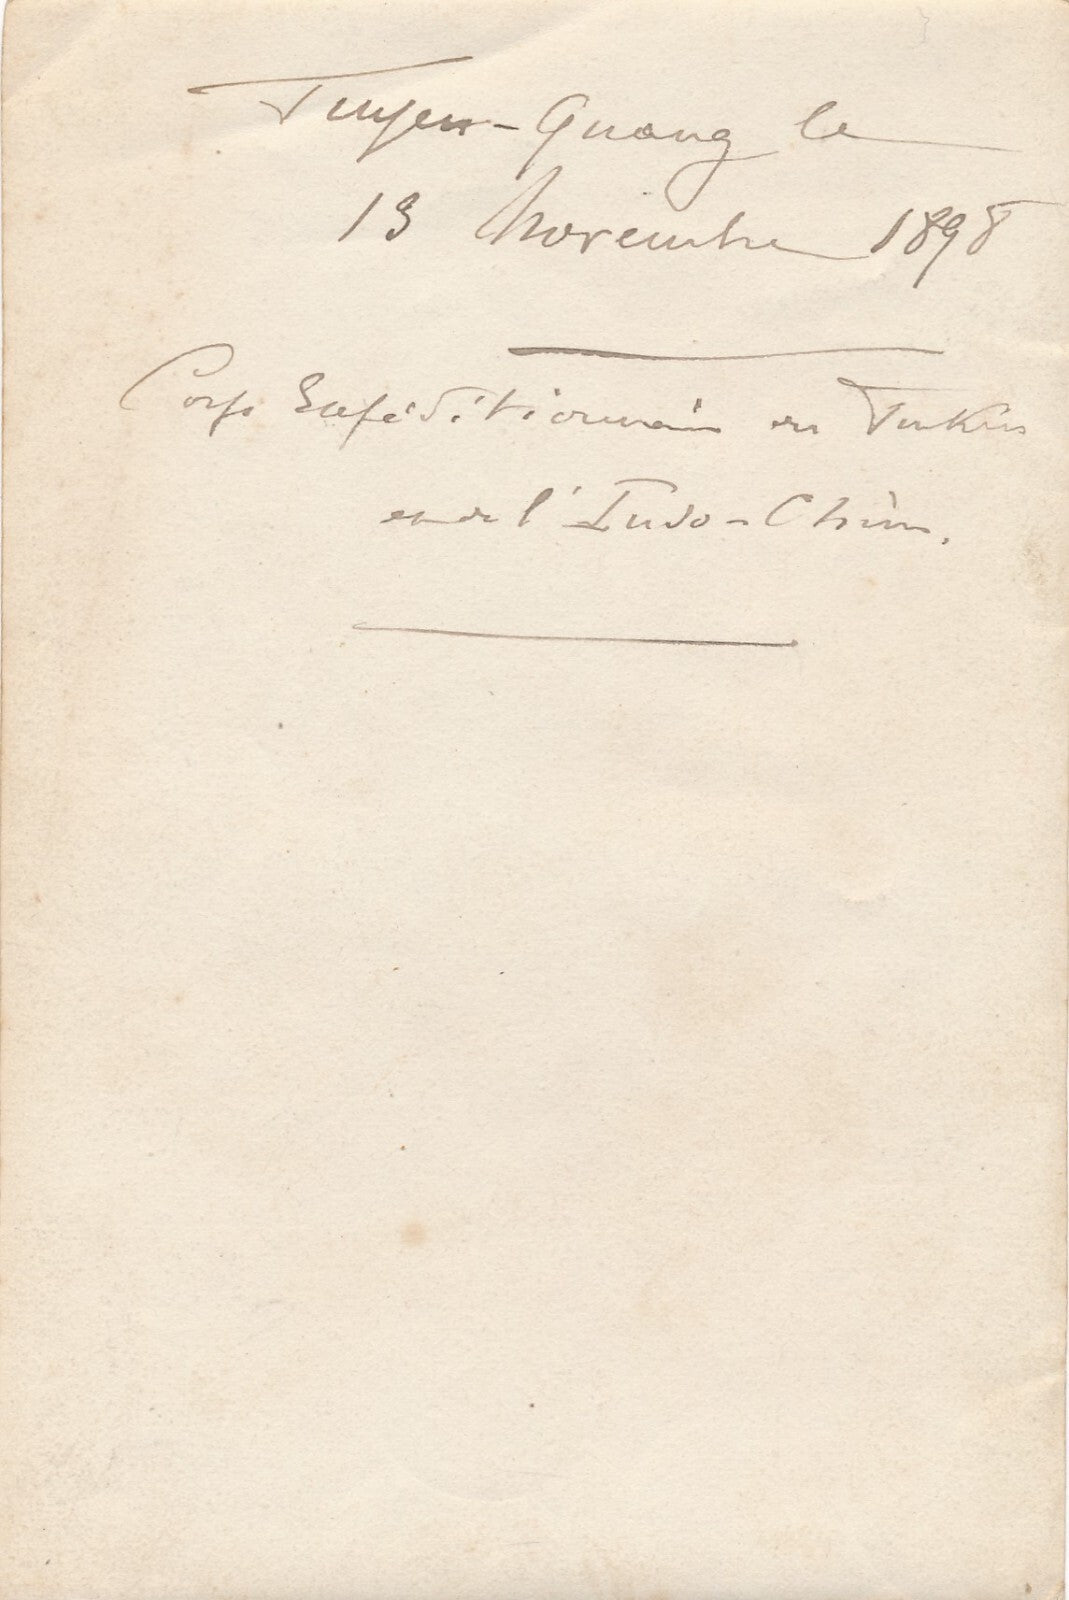 Tuyen-Quang le
13 Novembre 1898
Corps Expéditionnaire du Tonkin
et de l'Indo-Chine.